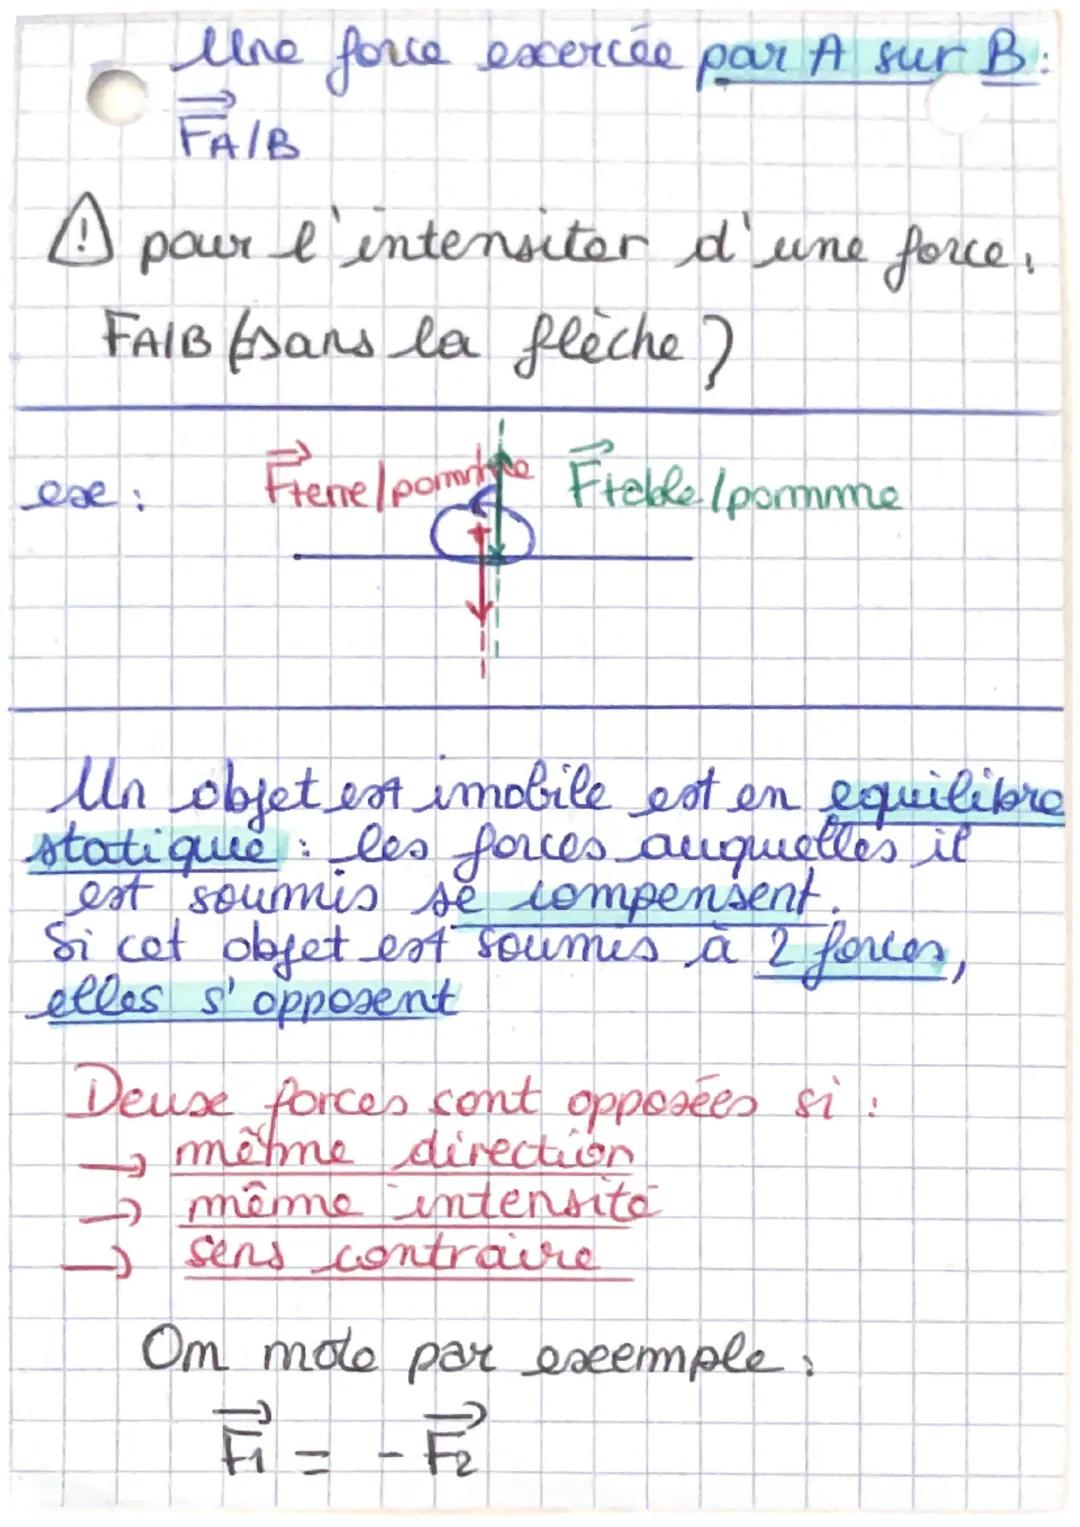 Une force exercée par A sur B :
F⃗A/B
⚠ pour l'intensiter d'une force,
FA/B (sans la flèche)
exe : F⃗terre/pomme F⃗table/pomme
Un objet est imobile est en equilibre
statique : les forces auquelles il
est soumis se compensent.
Si cet objet est soumis à 2 forces,
elles s'opposent
Deuxe forces sont opposées si :
→ même direction
→ même intensité
→ sens contraire
On note par exeemple :
F⃗1 = - F⃗2